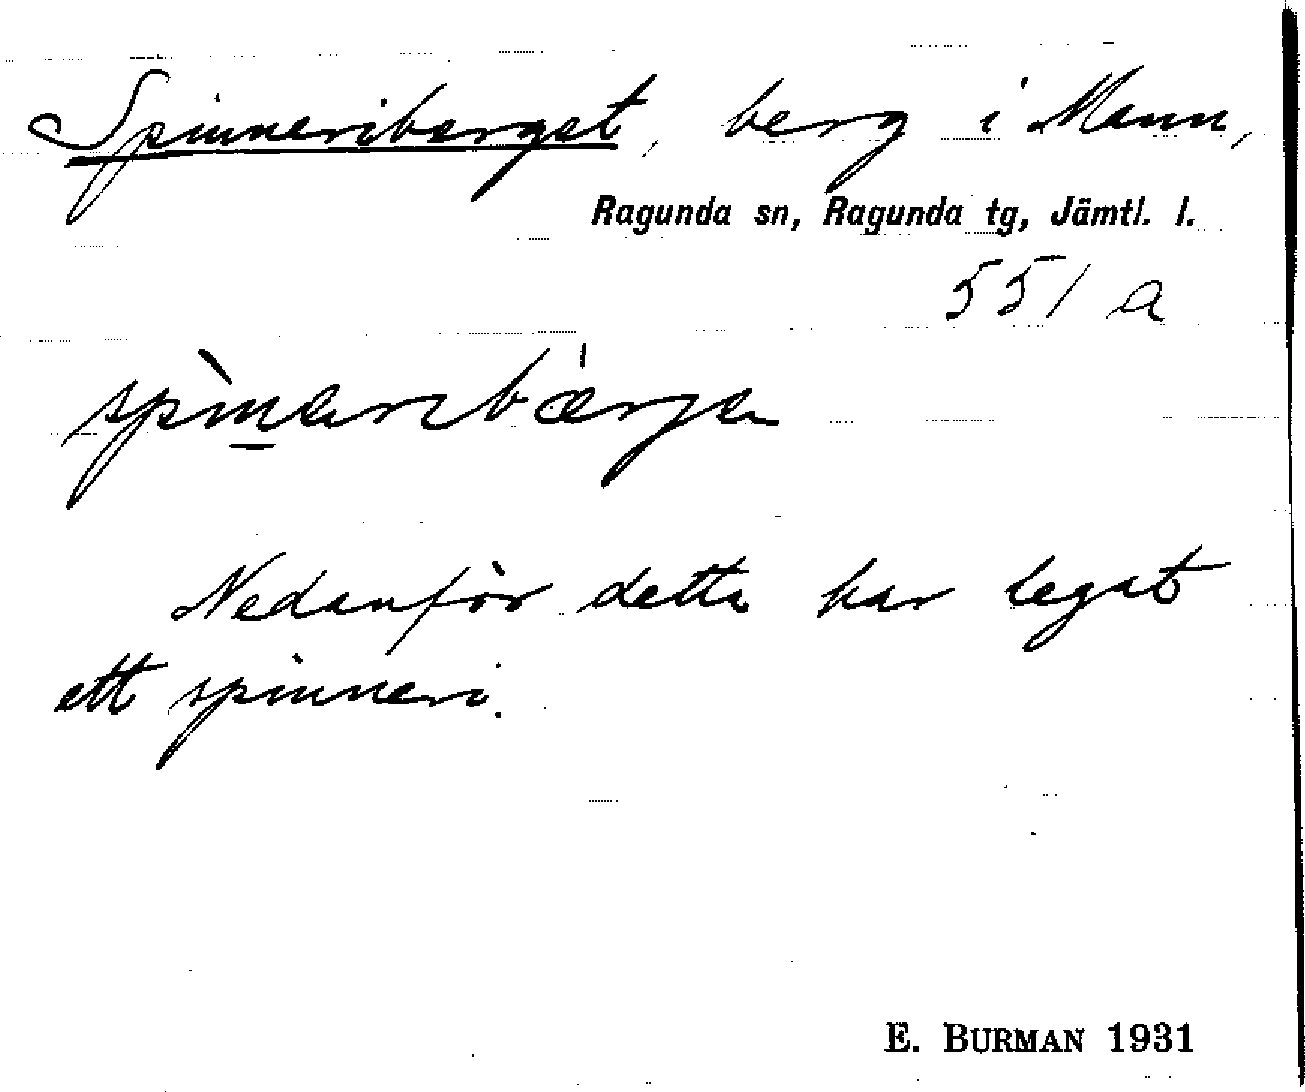 Spinneriberget, berg i Mann,
Ragunda sn, Ragunda tg, Jämtl. l.
551 a
Nedanför detta har legat
ett spinneri.
E. BURMAN 1931